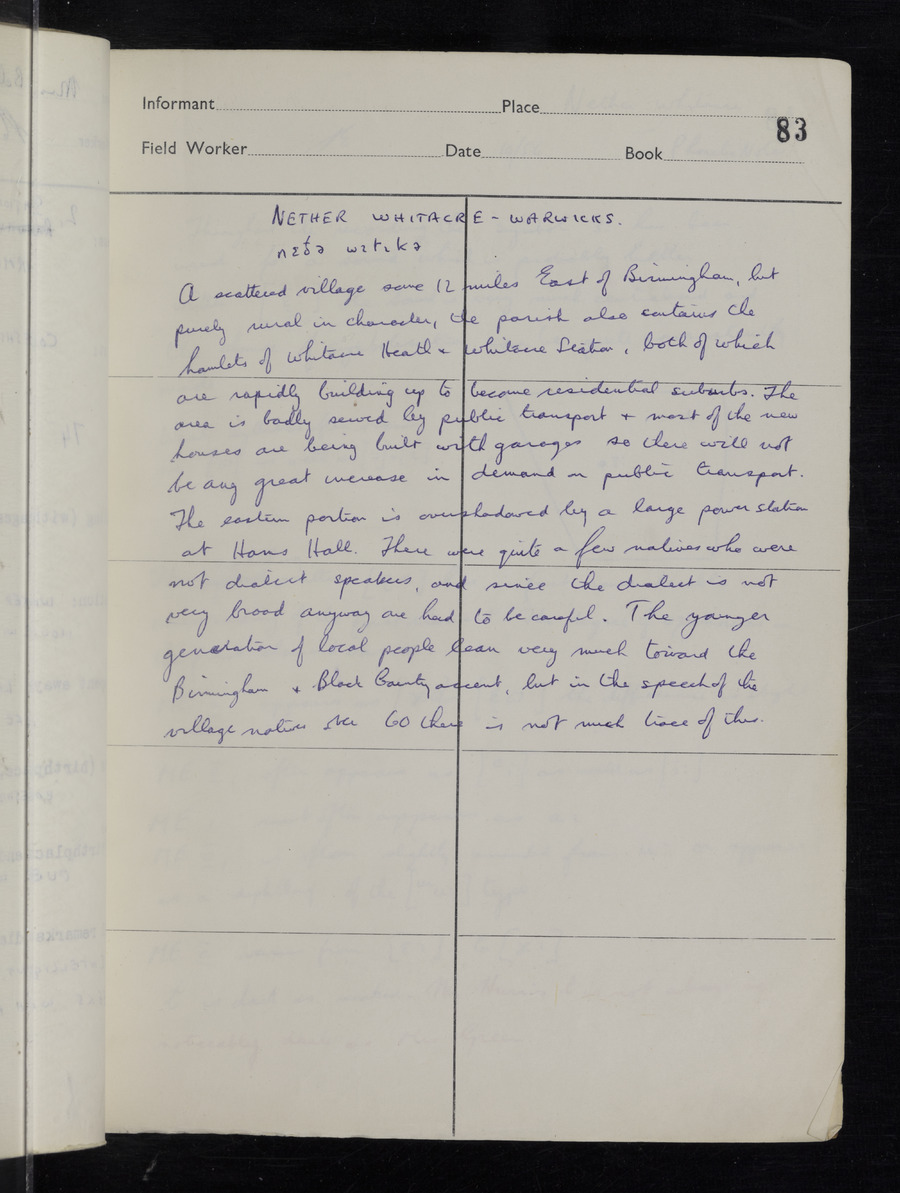 Informant Place
83
Field Worker Date Book
NETHER WHITACRE - WARWICKS.
nɛðə wɪtɪkə
A scattered village some 12 miles East of Birmingham, but
purely rural in character, the parish also contains the
hamlets of Whitacre Heath + Whitacre Station, both of which
are rapidly building up to become residential suburbs. The
area is badly served by public transport + most of the new
houses are being built with garages so there will not
be any great increase in demand on public transport.
The eastern portion is overshadowed by a large power station
at Hams Hall. There were quite a few natives who were
not dialect speakers, and since the dialect is not
very broad anyway one had to be careful. The younger
generation of local people lean very much toward the
Birmingham + Black Country accent, but in the speech of the
village natives over 60 there is not much trace of this.